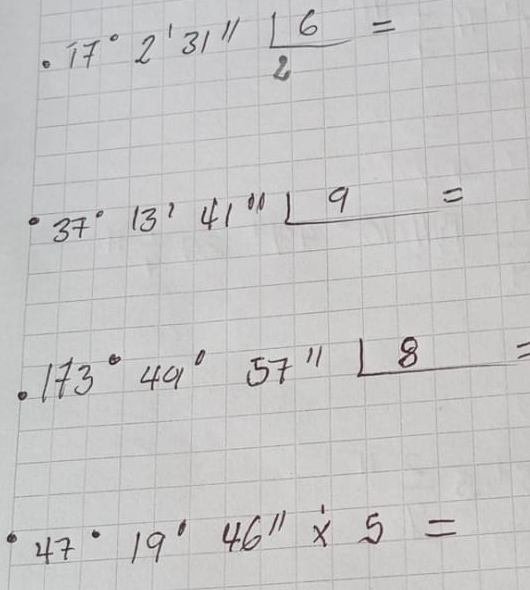 • 17° 2' 31" 6 =
2
• 37° 13' 41" 9 =
• 173° 49' 57" 8 =
• 47° 19' 46" x 5 =